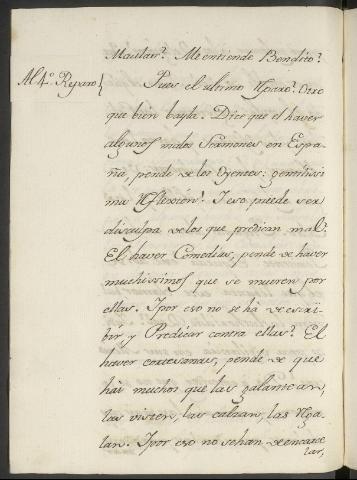 Maulan? Me entiende Bendito?
Al 4º. Reparo{
Pues el ultimo Rparo? Otro
que bien bayla. Dice que el haver
algunos malos Sermones en Espa-
ña, pende de los Oyentes: gentilissi-
ma Rflexión! Y eso puede ser
disculpa de los que predican mal?
El haver Comedias, pende de haver
muchissimos que se mueren por
ellas. Y por eso no se há de escri-
bir, y Predicar contra ellas? El
haver cortesanas, pende de que
hái muchos que las galantean,
las visten, las calzan, las Rga-
lan. Y por eso no se han de encarce
lar,